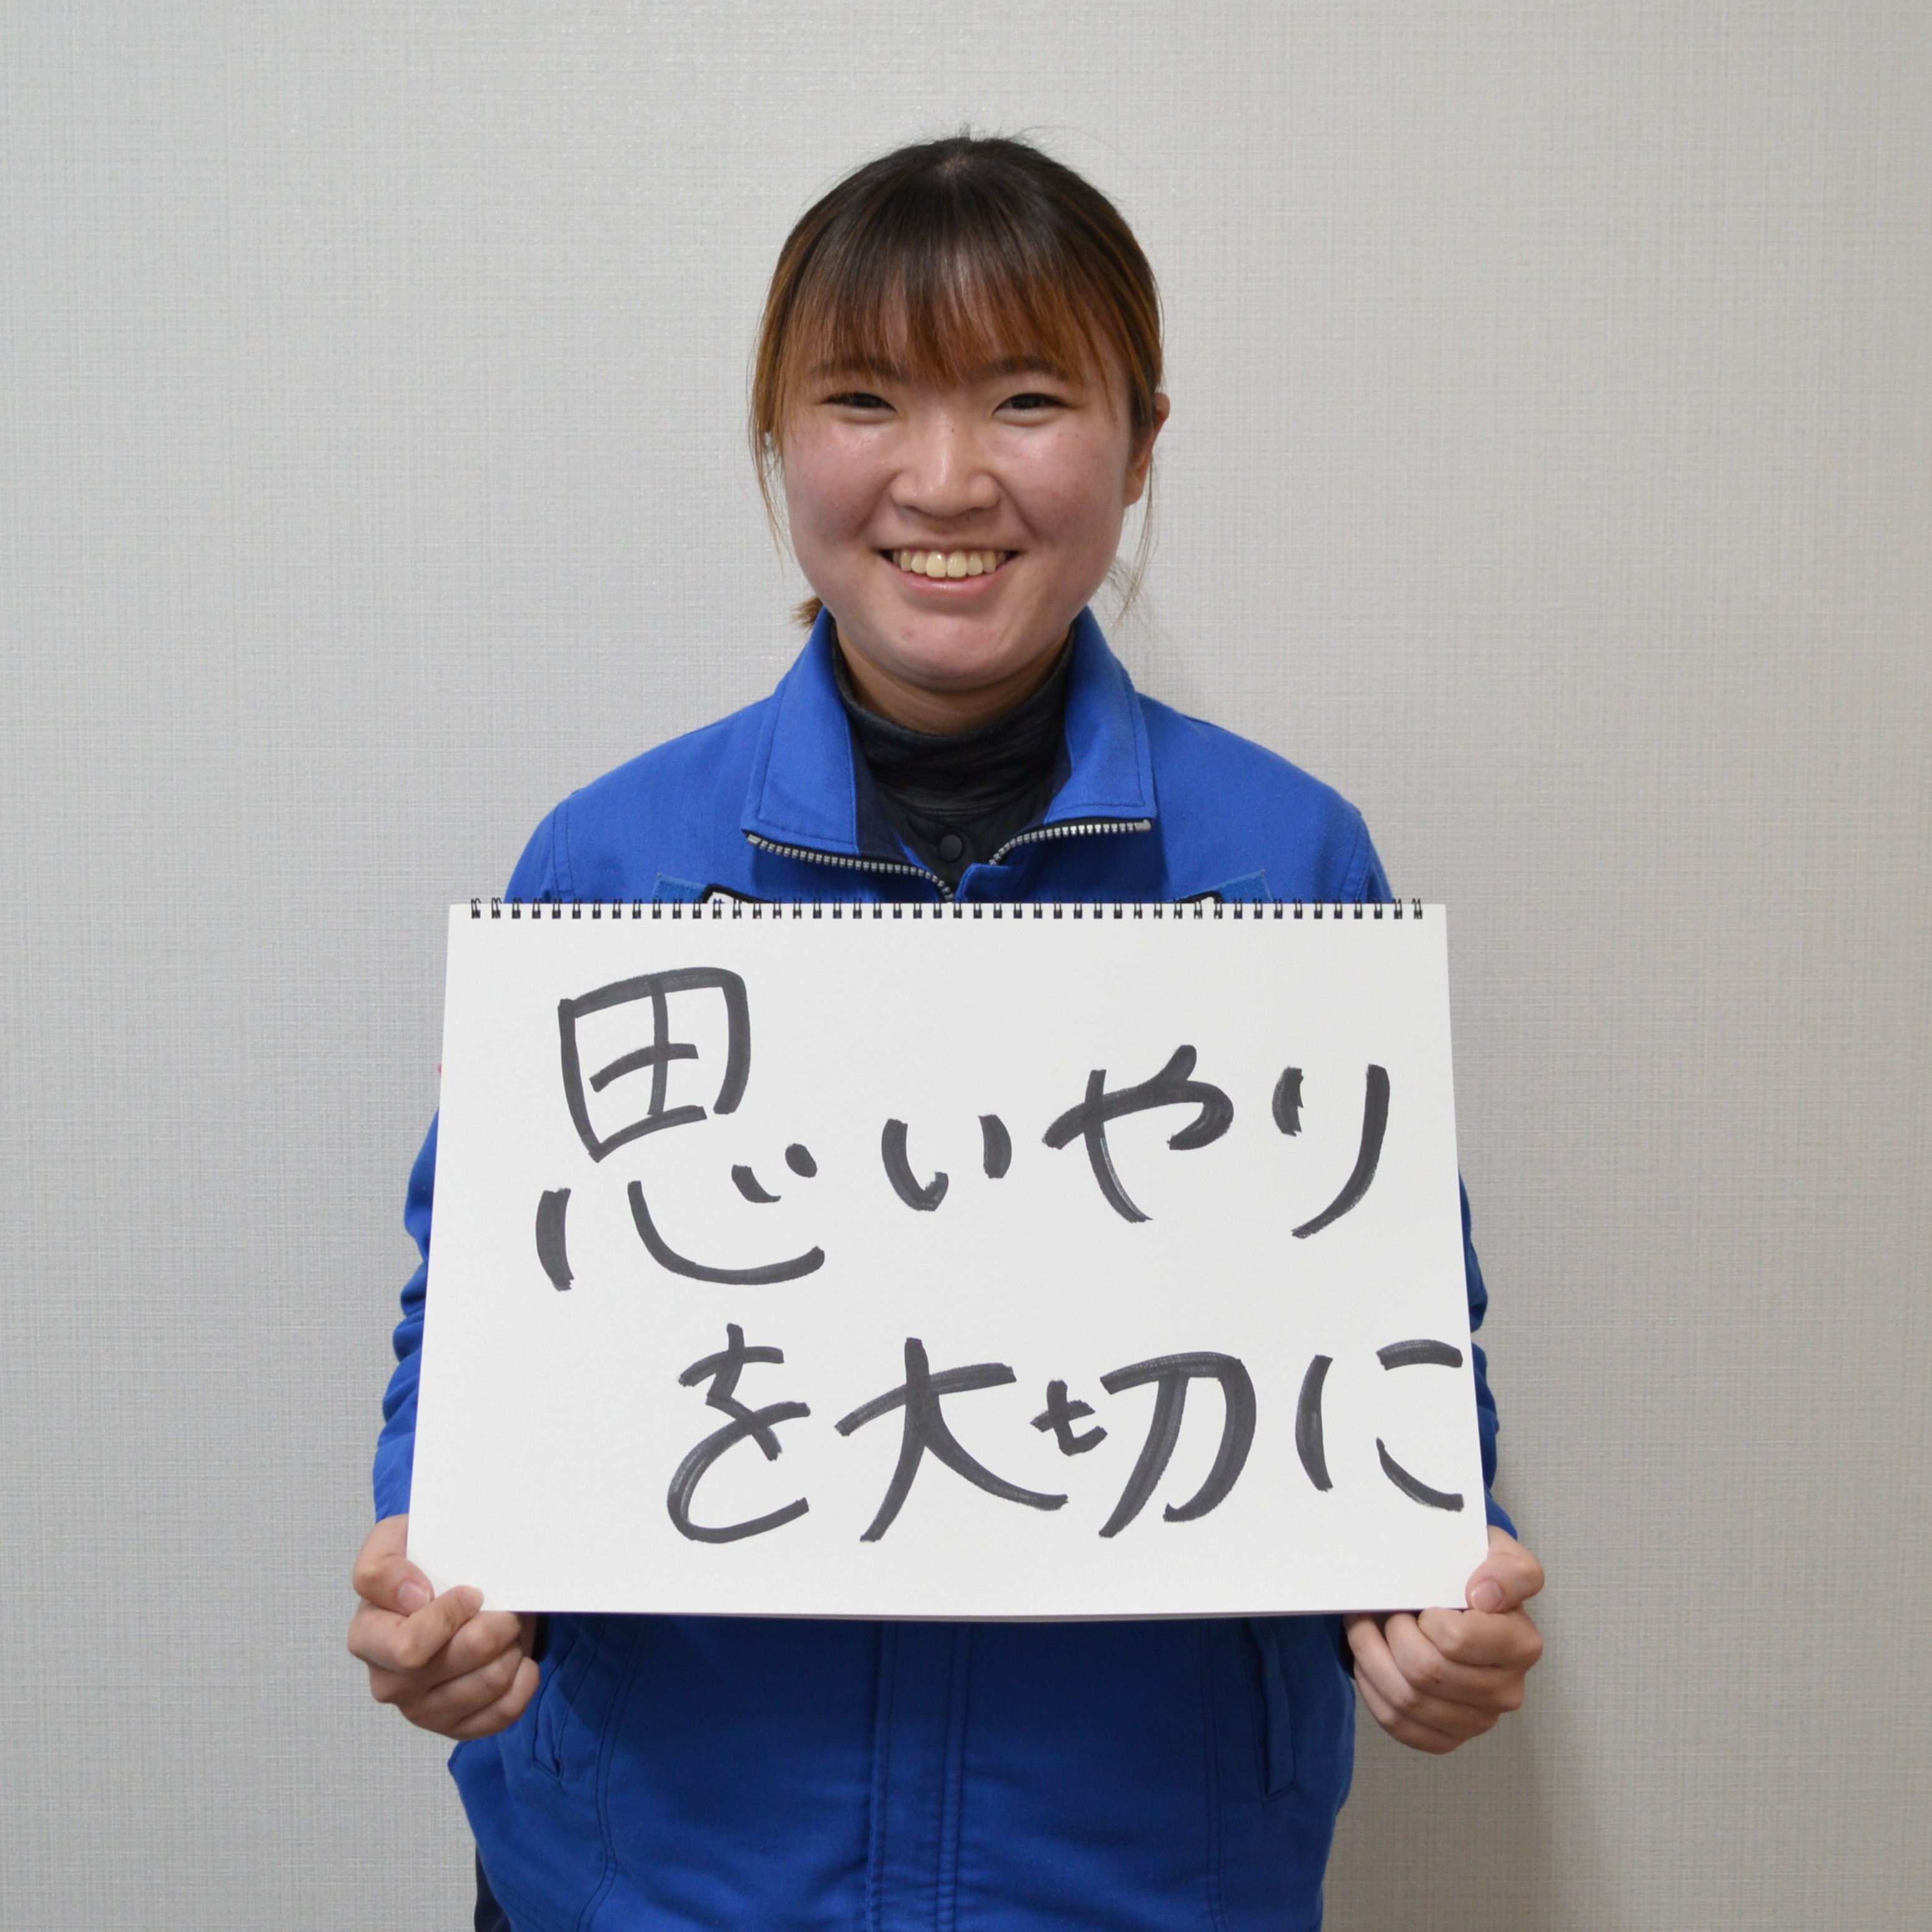 思いやり
を大切に